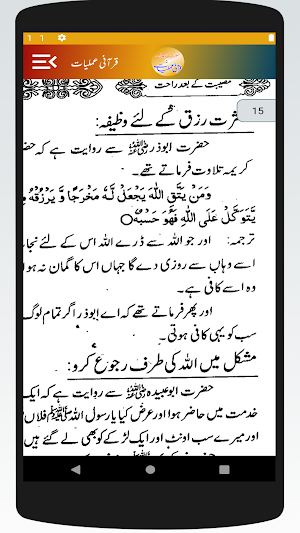 قرآنی عملیات
مصیبت کے بعد راحت
15
ثرت رزق کے لئے وظیفہ:
حضرت ابوذرؓ سے روایت ہے کہ حض
کریمہ تلاوت فرماتے تھے۔
وَمَنْ يَتَّقِ اللّٰهَ يَجْعَلْ لَّهٗ مَخْرَجًا وَّ يَرْزُقْهُ
يَّتَوَكَّلْ عَلَى اللّٰهِ فَهُوَ حَسْبُهٗ
ترجمہ: اور جو اللہ سے ڈرے اللہ اس کے لئے نجا
اسے وہاں سے روزی دے گا جہاں اس کا گمان نہ ہو ا
وہ اسے کافی ہے۔
اور پھر فرماتے تھے کہ اے ابوذر اگر تمام لوگ
سب کو یہی کافی ہوتی۔
مشکل میں اللہ کی طرف رجوع کرو:
حضرت ابوعبیدہؓ سے روایت ہے کہ ایک
خدمت میں حاضر ہوا اور عرض کیا یا رسول اللہ ﷺ فلاں
اور میرے سب اونٹ اور ایک لڑکے کو بھی لے گئے ہیں